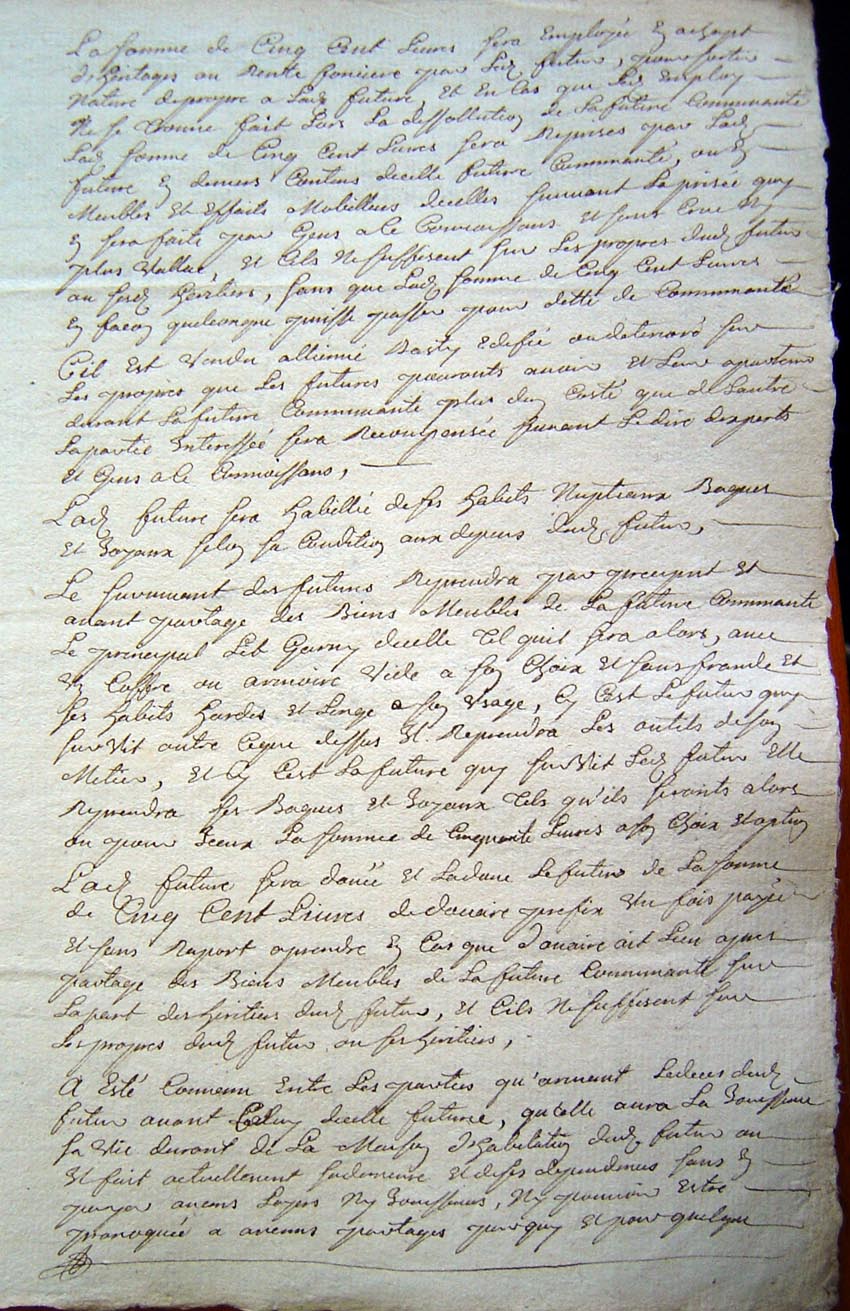 La somme de Cinq Cent Livres sera Employée En achapt
d'heritages ou Rente fonciere par Led. futur, pour sortir
Nature de propre a Lad. future, Et En Cas que Led. Employ
Ne se Trouve fait Lors La dissollution de La future Communauté
Lad. somme de Cinq Cent Livres sera Reprises par Lad.
future En deniers Contens dicelle future Communauté, ou En
Meubles Et Effaits Mobilliers dicelles suivant La prisée quy
En sera faite par Gens a le Connoissans Et sans Crue Ny
plus Vallue, Et Cils Ne suffisent sur Les propres dud. futur
ou sesd. heritiers, sans que Lad. somme de Cinq Cent Livres
En facon quelconque puisse passer pour dette de Communauté
Cil Est Vendu allienné Basty Edefié ou deterioré sur
Les propres que Les futures pouronts avoir Et Leur apartenir
durant La future Communauté plus dun Costé que de Lautre
La partie Interessée sera Recompensée suivant Le dire dexperts
Et Gens a le Connoissans,
Lad. future sera habillié de ses habits Nuptiaux Bagues
Et Joyaux selon sa Condition aux depens dud. futur,
Le survivant des futures Reprendra par preciput Et
avant partage des Biens Meubles de La future Communauté
Le principal Lit Garny dicelle Tel quil sera alors, avec
Un Coffre ou armoire Vide a son Choix Et sans fraude Et
ses habits hardes Et Linge a son Usage, Cy Cest Le futur quy
survit outre Ceque dessus Il Reprendra Les outils de son
Metier, Et Cy Cest La future quy survit Led. futur Elle
Reprendra ses Bagues Et Joyaux Tels qu'ils seronts alors
ou pour Iceux La somme de Cinquante Livres a son Choix Et option
Lad. future sera douée Et La doue Le futur de La somme
de Cinq Cent Livres de douaire prefix Une fois payée
Et sans Raport aprendre En Cas que douaire ait Lieu apres
partage des Biens Meubles de La future Communauté sur
La part des heritiers dud. futur, Et Cils Ne suffisent sur
Les propres dud. futur ou ses heritiers,
A Esté Convenu Entre Les parties qu'arivant Ledeces dud.
futur avant Celuy dicelle future, qu'elle aura La Jouissance
sa Vie durant de La Maison d'habitation dud. futur ou
Il fait actuellement sa demeure Et de ses dependences sans En
payer aucuns Loyers Ny Jouissances, Ny pouvoir Estre
provoquée a aucuns partages par quy Et pour quelque